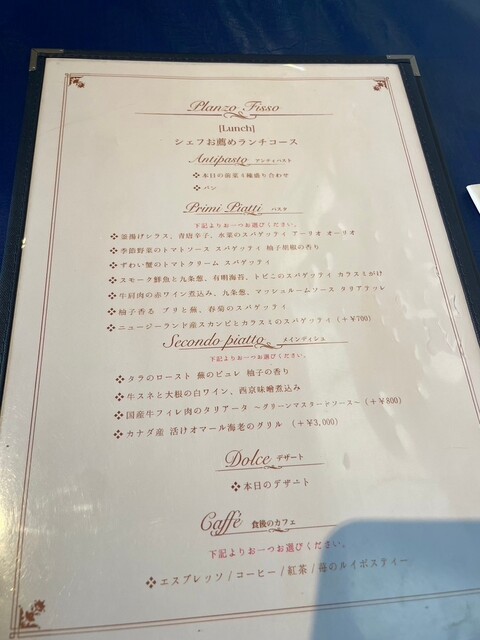 Planzo Fisso
[Lunch]
シェフお薦めランチコース
Antipasto アンティパスト
❖本日の前菜4種盛り合わせ
❖パン
Primi Piatti パスタ
下記よりお一つお選びください。
❖釜揚げシラス、青唐辛子、水菜のスパゲッティ アーリオ オーリオ
❖季節野菜のトマトソース スパゲッティ 柚子胡椒の香り
❖ずわい蟹のトマトクリーム スパゲッティ
❖スモーク鮮魚と九条葱、有明海苔、トビこのスパゲッティ カラスミがけ
❖牛肩肉の赤ワイン煮込み、九条葱、マッシュルームソース タリアテッレ
❖柚子香る ブリと蕪、春菊のスパゲッティ
❖ニュージーランド産スカンピとカラスミのスパゲッティ (+¥700)
Secondo piatto メインディシュ
下記よりお一つお選びください。
❖タラのロースト 蕪のピュレ 柚子の香り
❖牛スネと大根の白ワイン、西京味噌煮込み
❖国産牛フィレ肉のタリアータ ～グリーンマスタードソース～ (+¥800)
❖カナダ産 活けオマール海老のグリル (+¥3,000)
Dolce デザート
❖本日のデザート
Caffé 食後のカフェ
下記よりお一つお選びください。
❖エスプレッソ / コーヒー / 紅茶 / 苺のルイボスティー